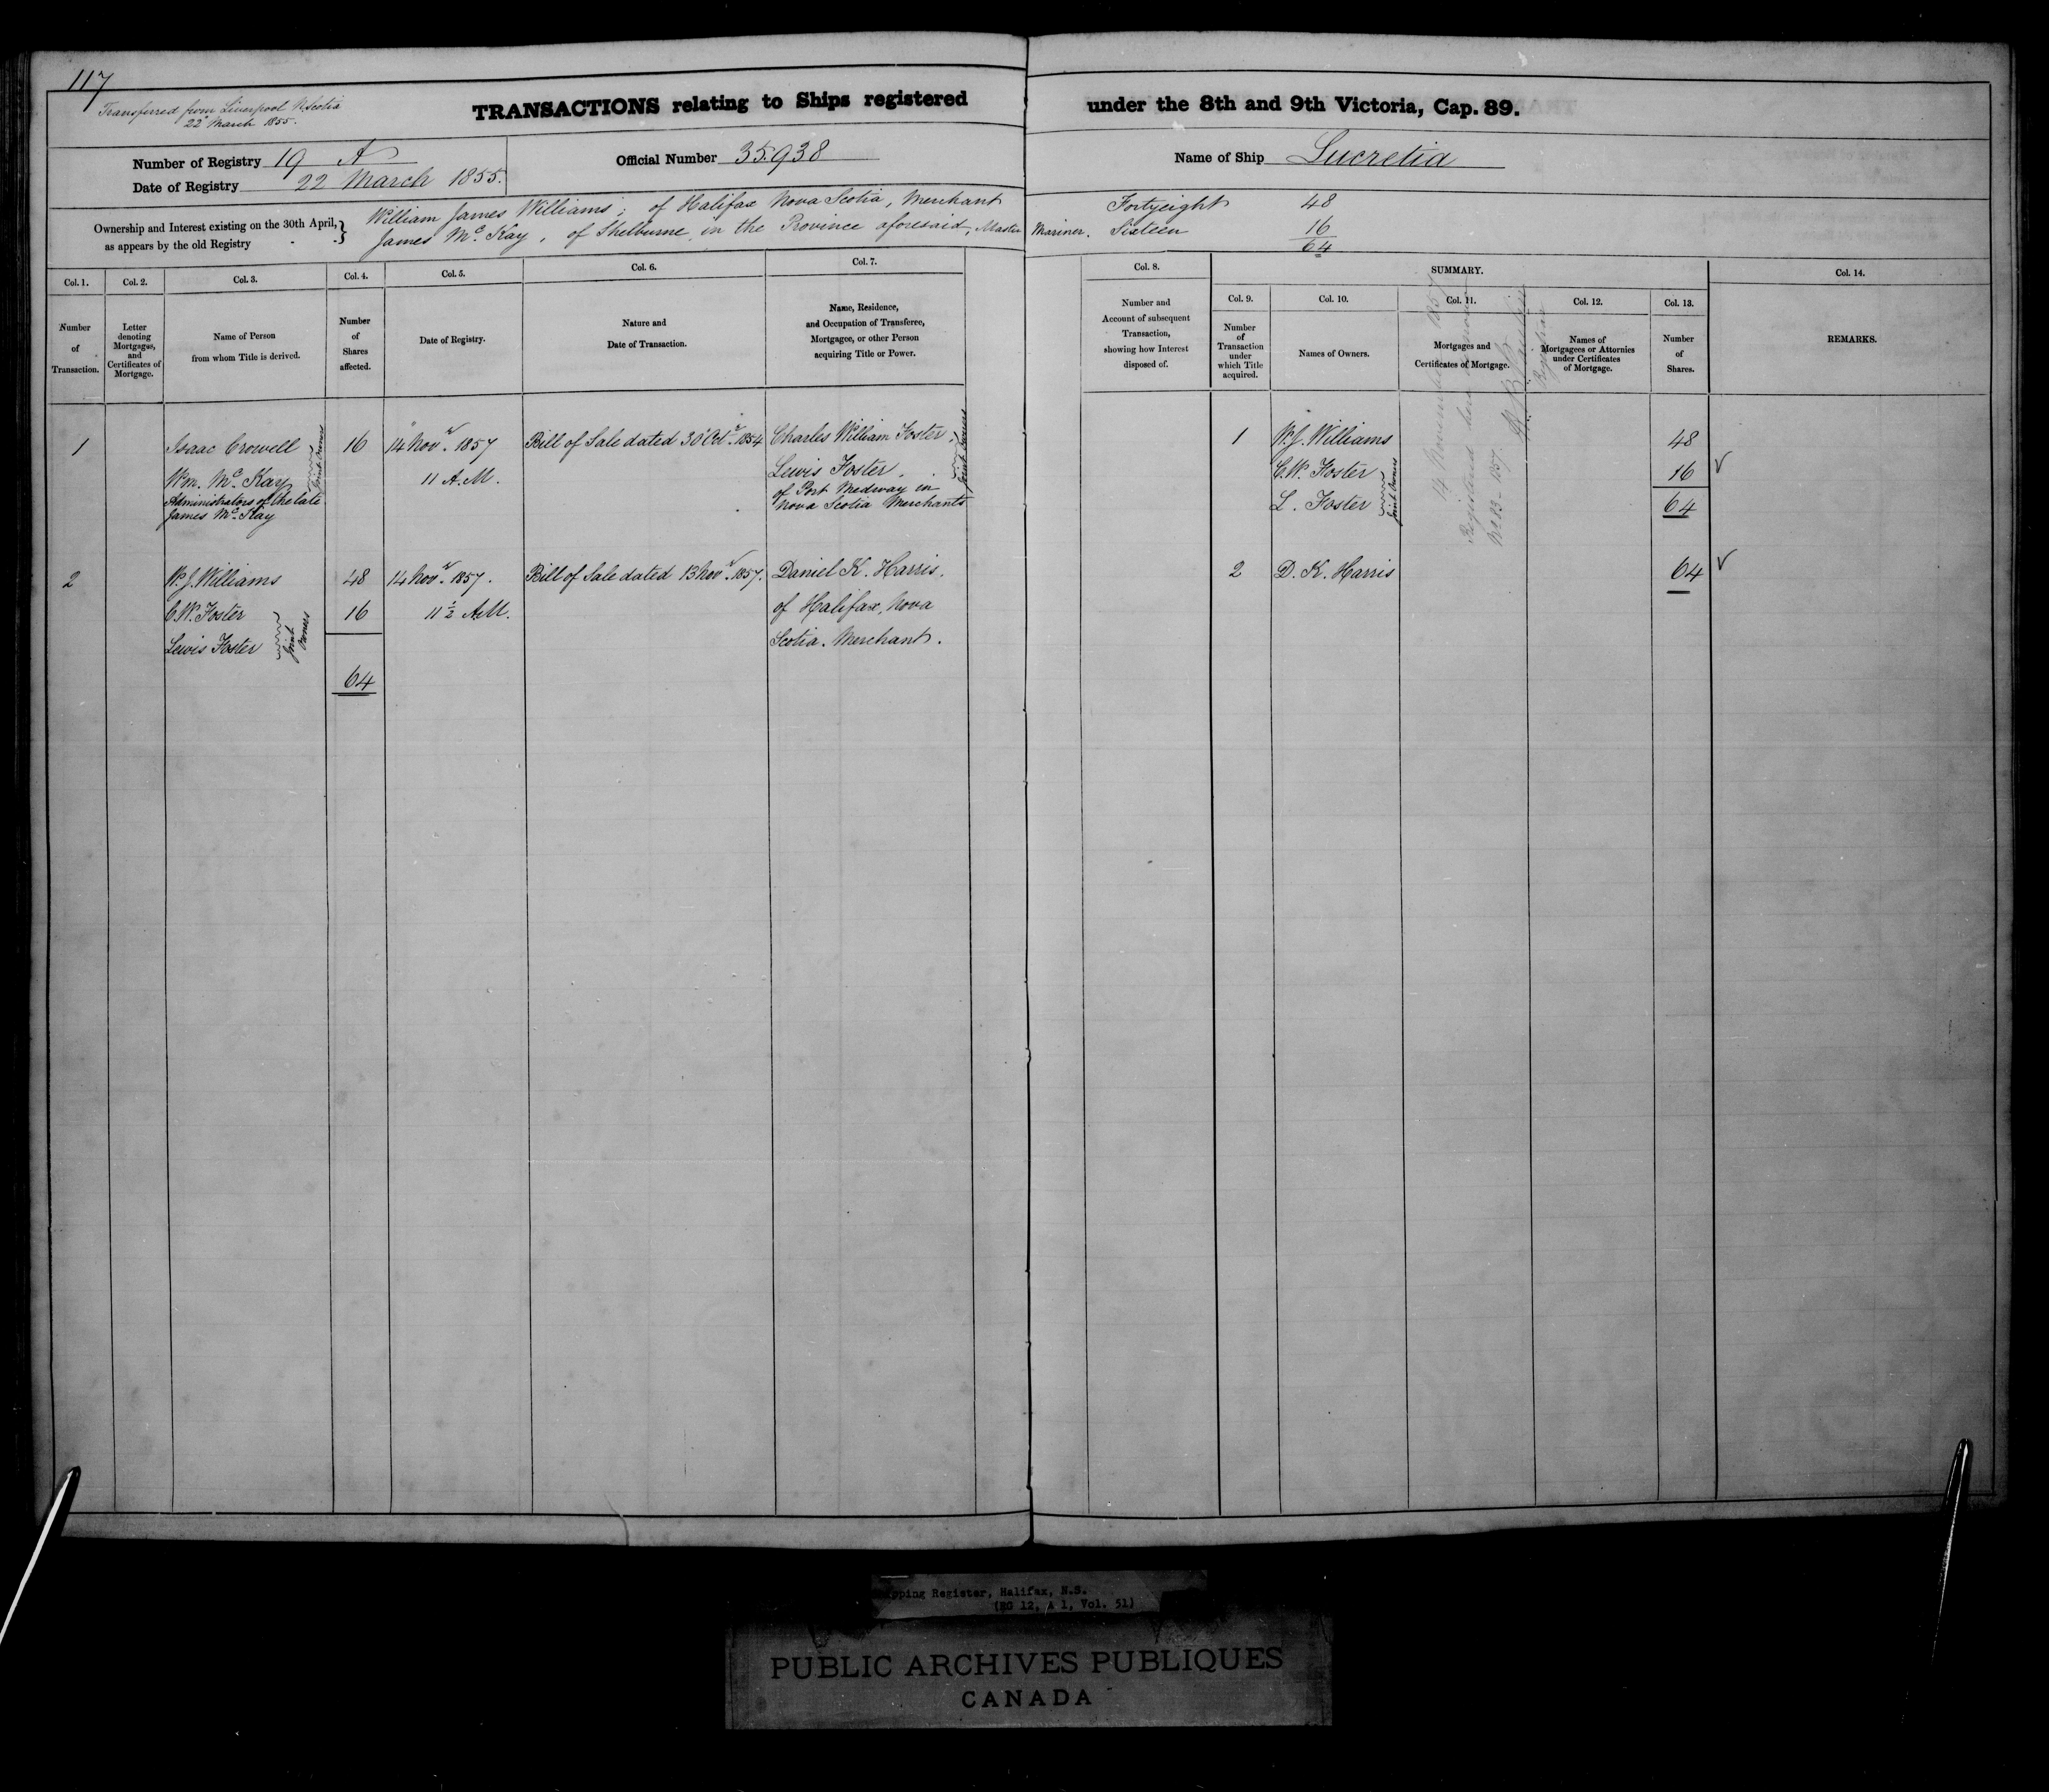 117
Transferred from Liverpool N. Scotia
22d March 1855.
TRANSACTIONS relating to Ships registered under the 8th and 9th Victoria, Cap. 89.
Number of Registry 19 A
Date of Registry 22 March 1855.
Official Number 35.938
Name of Ship Lucretia
Ownership and Interest existing on the 30th April, as appears by the old Registry
William James Williams, of Halifax Nova Scotia, Merchant Fortyeight 48
James McKay, of Shelburne in the Province aforesaid, Master Mariner. Sixteen 16
64
Col. 1.
Col. 2.
Col. 3.
Col. 4.
Col. 5.
Col. 6.
Col. 7.
Col. 8.
SUMMARY.
Col. 14.
Col. 9.
Col. 10.
Col. 11.
Col. 12.
Col. 13.
Number of Transaction.
Letter denoting Mortgages, and Certificates of Mortgage.
Name of Person from whom Title is derived.
Number of Shares affected.
Date of Registry.
Nature and Date of Transaction.
Name, Residence, and Occupation of Transferee, Mortgagee, or other Person acquiring Title or Power.
Number and Account of subsequent Transaction, showing how Interest disposed of.
Number of Transaction under which Title acquired.
Names of Owners.
Mortgages and Certificates of Mortgage.
Names of Mortgagees or Attornies under Certificates of Mortgage.
Number of Shares.
REMARKS.
1 Isaac Crowell 16 14 Novr. 1857 Bill of Sale dated 30 Octr. 1854 Charles William Foster, 1 W. J. Williams 48
Wm. McKay 11 A.M. Lewis Foster, C. W. Foster 16
Administrators of the late of Port Medway in L. Foster 64
James McKay Nova Scotia Merchants
Joint Owners
Joint Owners
Joint Owners
2 W. J. Williams 48 14 Novr. 1857. Bill of Sale dated 13 Novr. 1857. Daniel K. Harris, 2 D. K. Harris 64
C. W. Foster 16 11 1/2 A.M. of Halifax, Nova
Lewis Foster Scotia. Merchant.
Joint Owners
64
14 November 1857
Registered
No. 83 - 1857.
Registrar
pping Register, Halifax, N.S.
(RG 12, A 1, Vol. 51)
PUBLIC ARCHIVES PUBLIQUES
CANADA